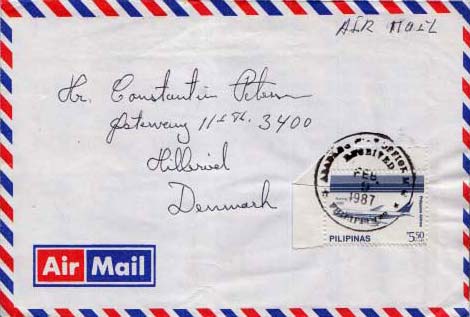 AIR MAIL
Hr. Constantin Petersen
11 3400
Hillerød
Denmark
RECEIVED
FEB
9
1987
PILIPINAS
5.50
Air Mail